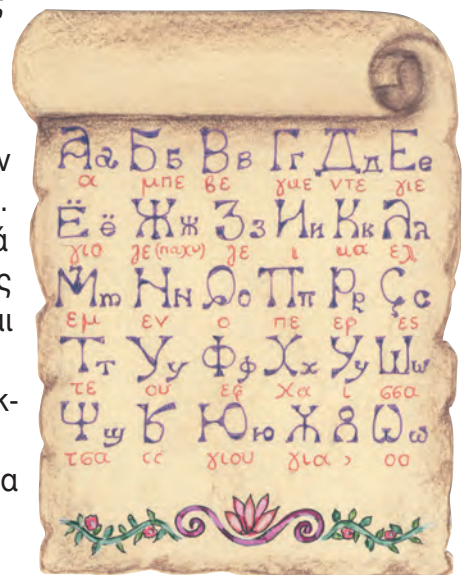 Аа Бб Вв Гг Дд Ее
α μπε βε γκε ντε γιε
Ёё Жж Зз Ии Кк Лл
γιο ζε(παχυ) ζε ι κα ελ
Мm Нн Оо Пп Рр Çс
εμ εν ο πε ερ ες
Тт Уу Фф Хх Уу Шω
τε ου εφ χα ι σσα
Ψщ Ѕ Юю Ѫ Ȣ Ѡѡ
τσα ςς γιου για › οο